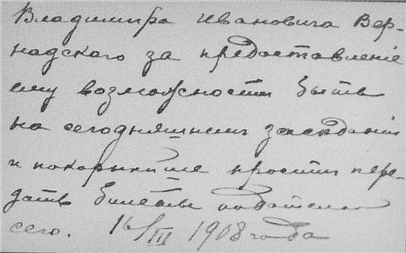 Владимира Ивановича Вер-
надского за предоставленіе
ему возможности быть
на сегодняшнемъ засѣданіи
и покорнѣйше проситъ пере-
дать билеты подателю
сего. 16/III 1908 года